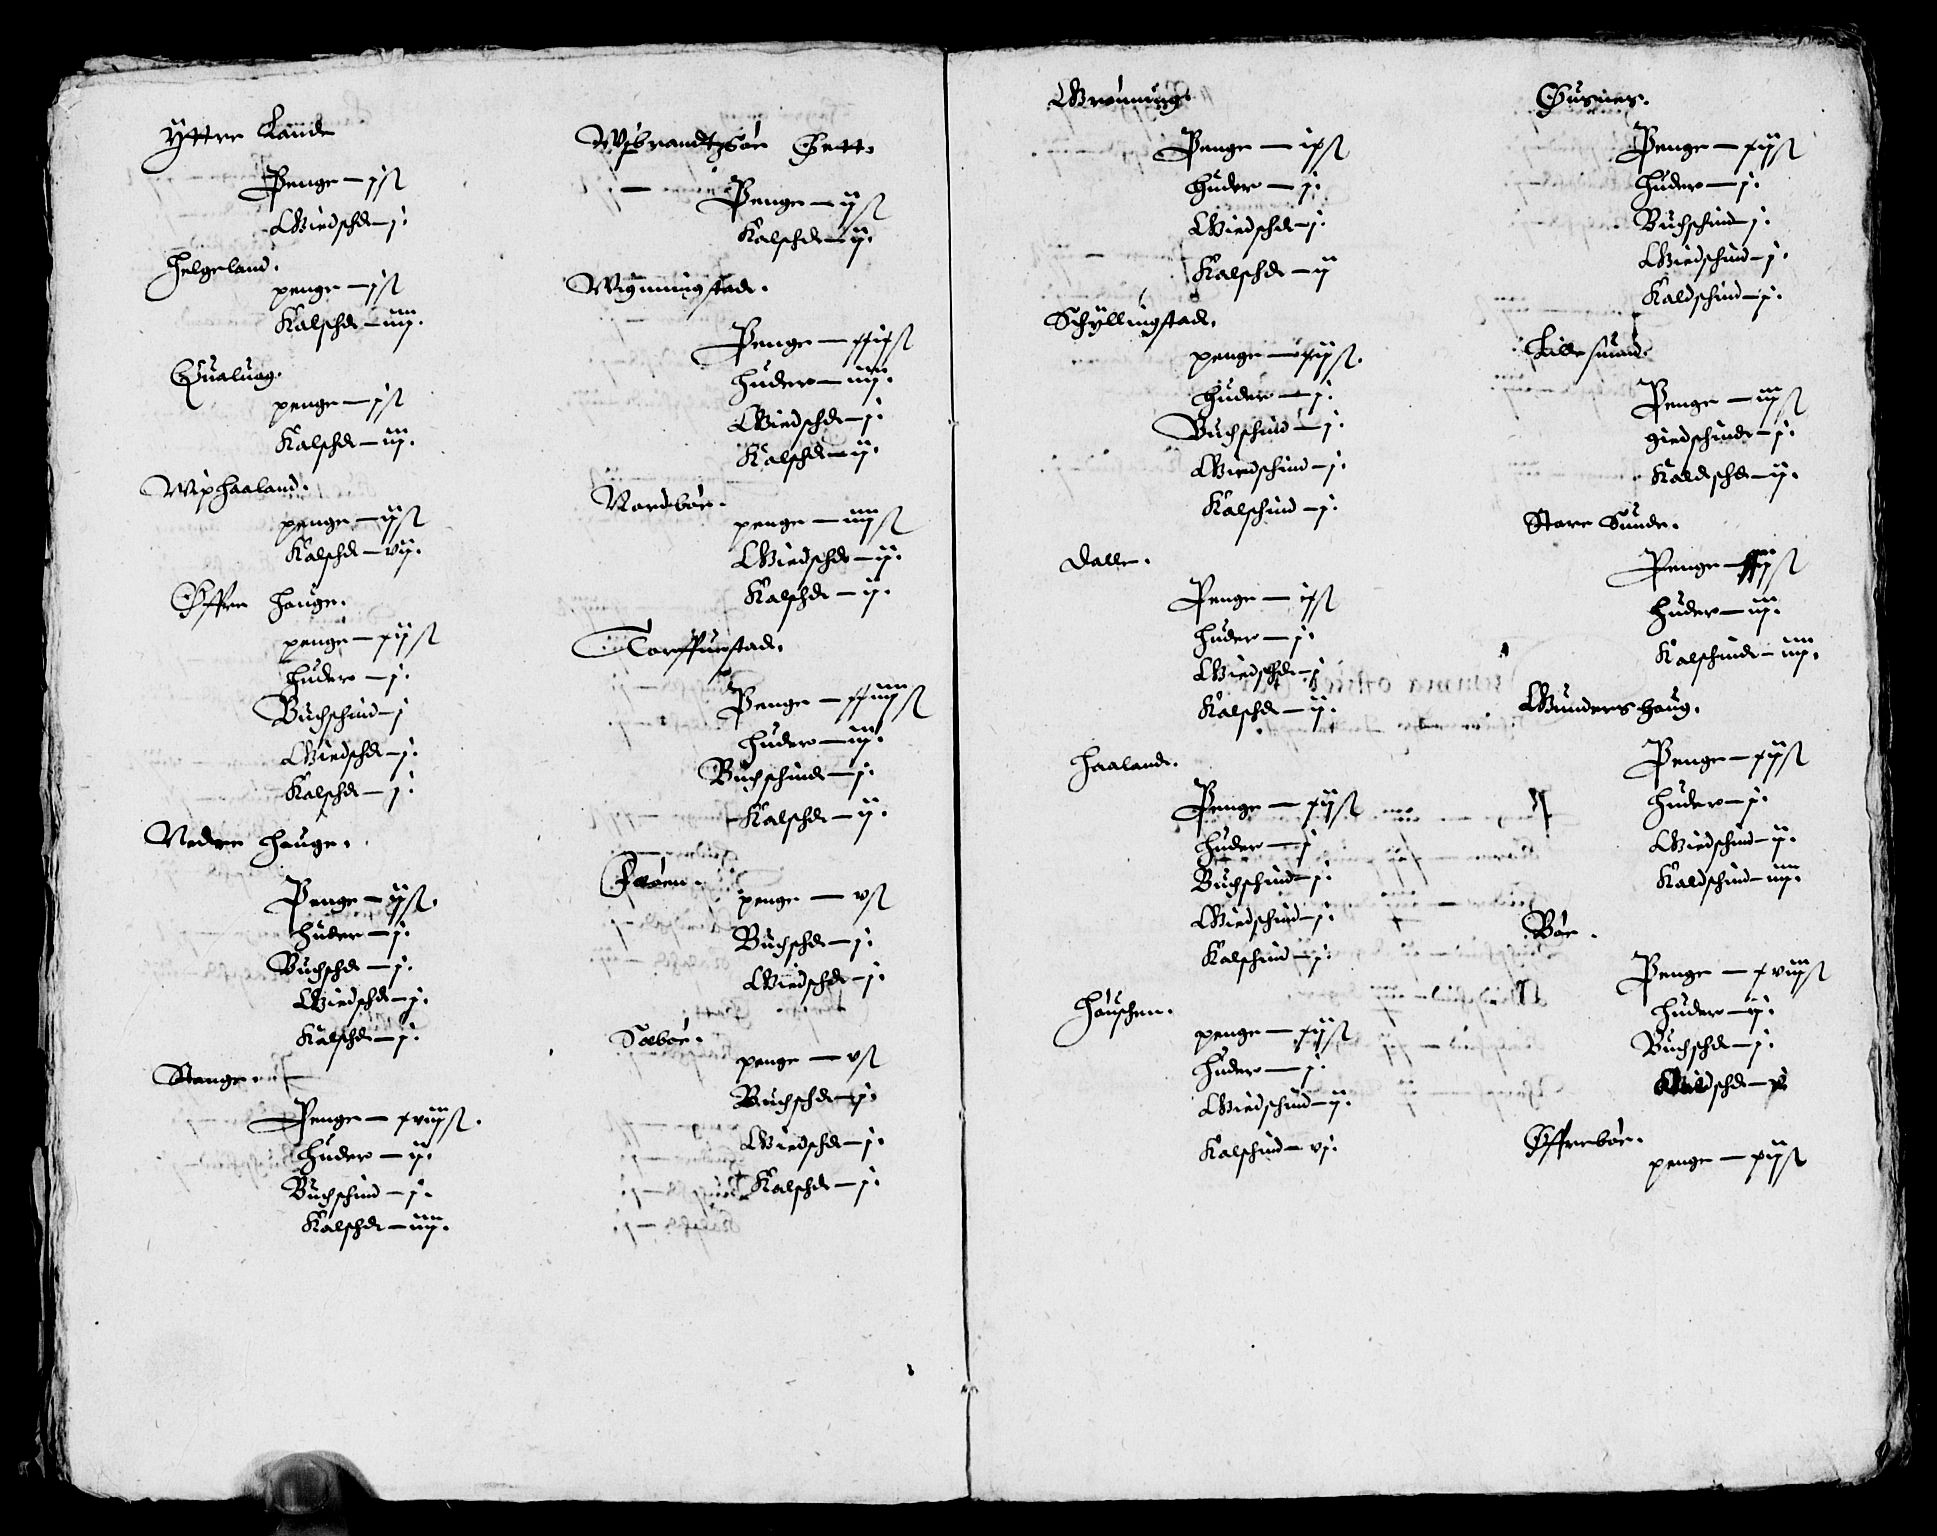 Yttre Lande
Penge — j ß
Wiedschd — j.
Helgeland.
penge — j ß
Kalschd — iiij.
Qualuag.
penge — j ß
Kalschd — iij.
Wiphaaland.
penge — ij ß
Kalschd — vij.
Øffre Hauge.
penge — xij ß
Huder — j.
Buchschind — j
Wiedschd — j.
Kalschd — j.
Nedre Hauge.
Penge — ij ß.
Huder — j.
Buchschd — j.
Wiedschd — j.
Kalschd — j.
Stange.
Penge — xviij ß.
Huder — ij.
Buchschind — j.
Kalschd — iiij.
Wibrandtzøer Gett.
Penge — ij ß
Kalschd — ij.
Wignningstade.
Penge — xxix ß
Huder — iiij.
Wiedschd — j.
Kalschd — ij.
Nordbøe.
penge — iiij ß
Wiedschd — ij.
Kalschd — ij.
Torffuestade.
Penge — xxiiij ß
Huder — iij.
Buchschinde — j.
Kalschd — ij.
Frøen.
penge — v ß
Buchschd — j.
Wiedschd — j.
Søebøe.
penge — v ß
Buchschd — j.
Wiedschd — j.
Kalschd — j.
Grønning.
Penge — ix ß
Huder — j.
Wiedschd — j.
Kalschd — ij
Schyllingstade.
penge — xij ß.
Huder — j.
Buchschind — j.
Wiedschind — j.
Kalschind — j.
Dalle.
Penge — ix ß
Huder — j.
Wiedschd — j
Kalschd — ij.
Haalande.
Penge — xij ß
Huder — j
Buchschind — j.
Wiedschind — j.
Kalschind — j.
Hauschen.
penge — xij ß
Huder — j.
Wiedschind — ij.
Kalschind — vj.
Gusnes.
Penge — xij ß
Huder — j.
Buchschind — j.
Wiedschind — j.
Kaldschind — j.
Lillesund.
Penge — iij ß
giedschinde — j.
Kaldschd — ij.
Store Sunde.
Penge —
Huder — iij.
Kalschinde — iiij.
Gunders haug.
Penge — xij ß
Huder — j.
Wiedschind — ij.
Kaldschind — iiij.
Bøe.
Penge — xviij ß
Huder — ij.
Buchschd — j.
Wiedschd —
Øffrebøe.
penge — xij ß